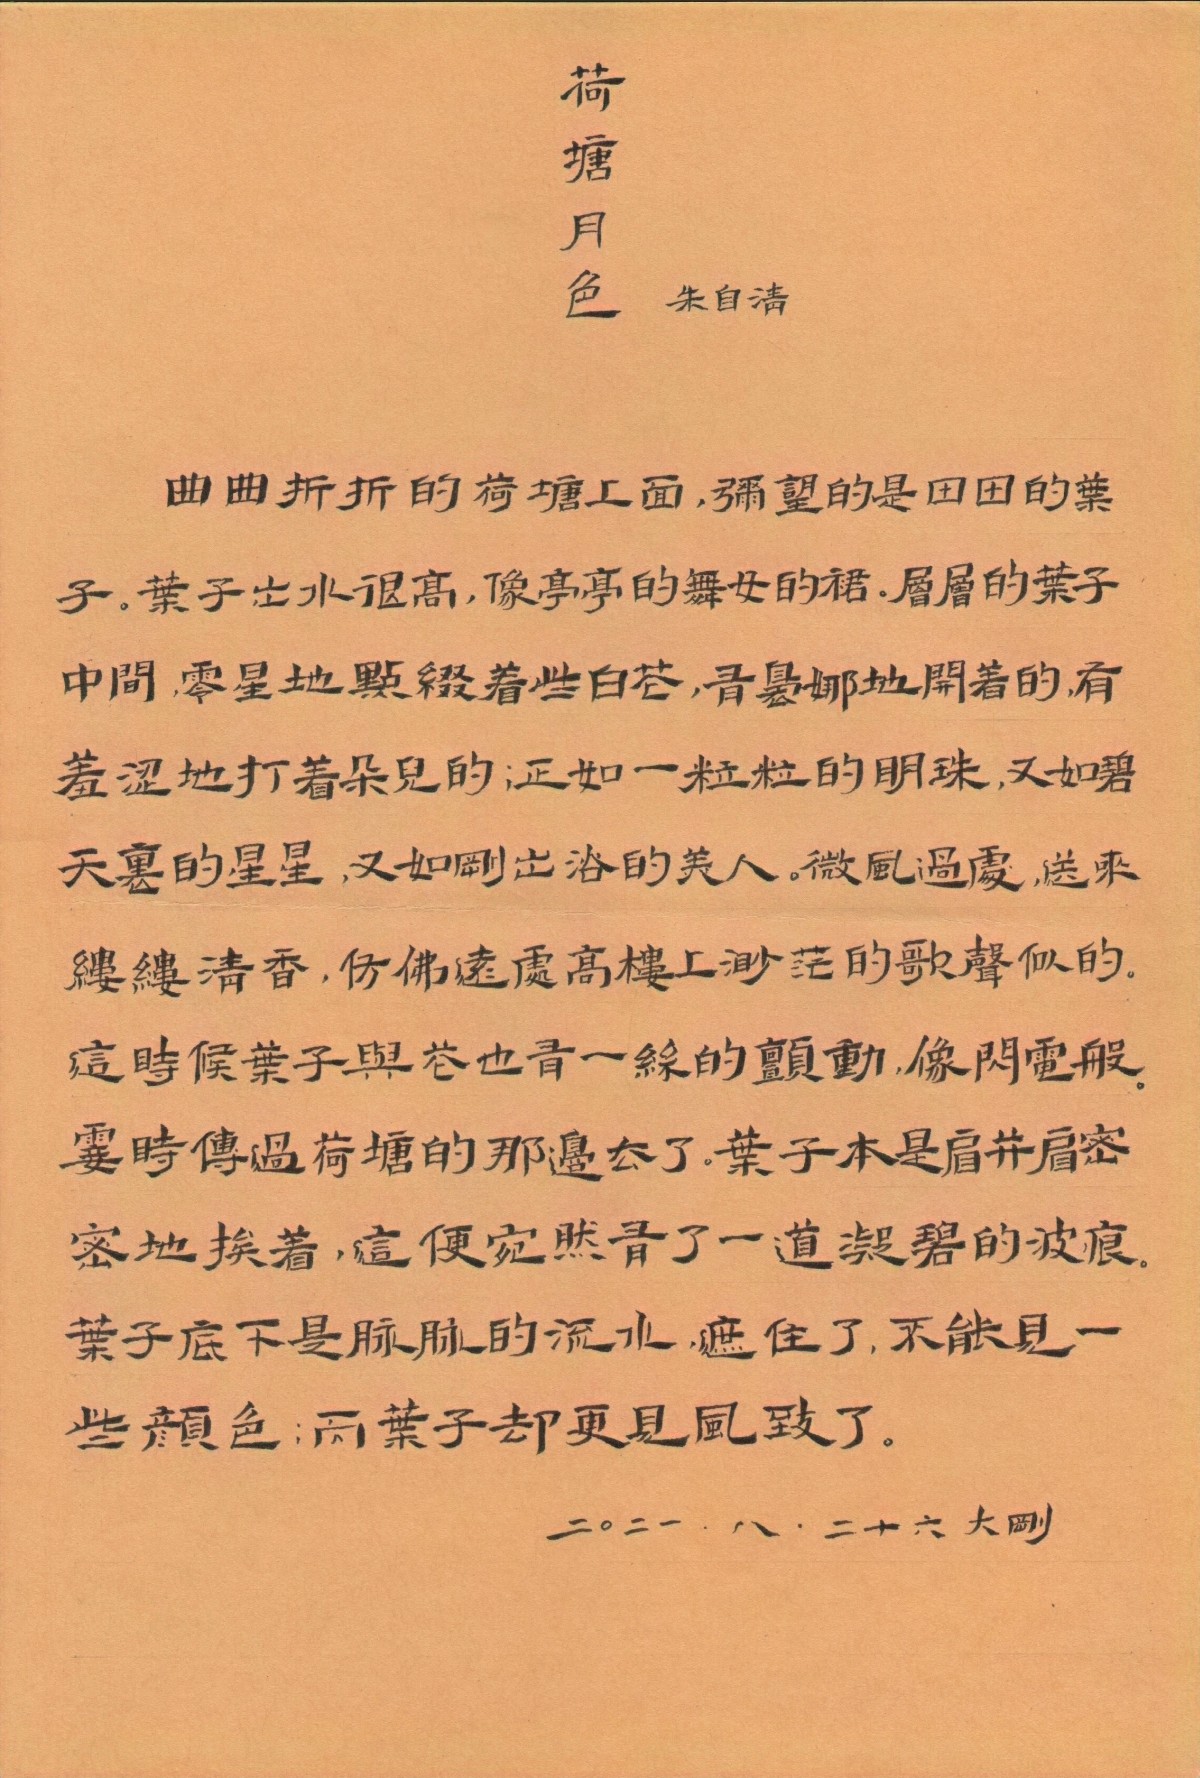 荷塘月色
朱自清
曲曲折折的荷塘上面,彌望的是田田的葉
子。葉子出水很高,像亭亭的舞女的裙.層層的葉子
中間,零星地點綴着些白花,有裊娜地開着的,有
羞澀地打着朵兒的;正如一粒粒的明珠,又如碧
天裏的星星,又如剛出浴的美人。微風過處,送來
縷縷清香,仿佛遠處高樓上渺茫的歌聲似的。
這時候葉子與花也有一絲的顫動,像閃電般。
霎時傳過荷塘的那邊去了。葉子本是肩并肩密
密地挨着,這便宛然有了一道凝碧的波痕。
葉子底下是脉脉的流水,遮住了,不能見一
些顏色;而葉子却更見風致了。
二〇二一.八.二十六 大剛